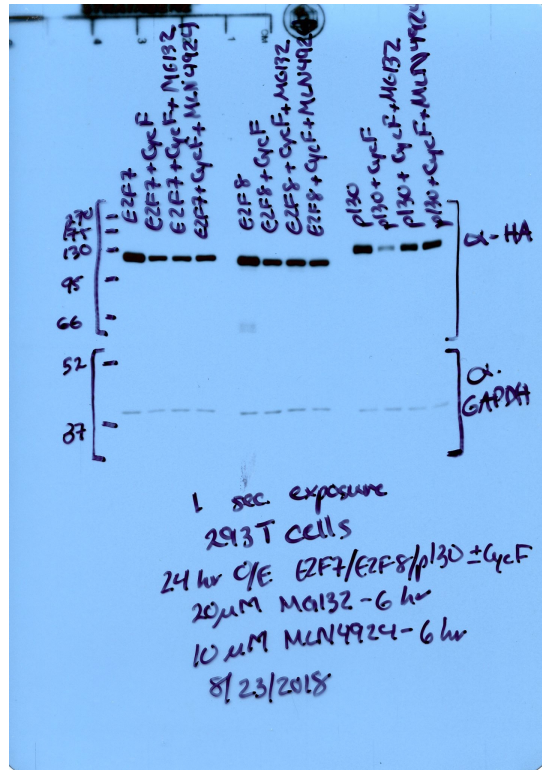 cm
E2F7
E2F7+CycF
E2F7+CycF+MG132
E2F7+CycF+MLN4924
E2F8
E2F8+CycF
E2F8+CycF+MG132
E2F8+CycF+MLN4924
p130
p130+CycF
p130+CycF+MG132
p130+CycF+MLN4924
130
95
66
52
37
α-HA
α.
GAPDH
1 sec. exposure
293T cells
24 hr O/E E2F7/E2F8/p130 ±CycF
20μM MG132-6 hr
10 μM MLN4924-6 hr
8/23/2018